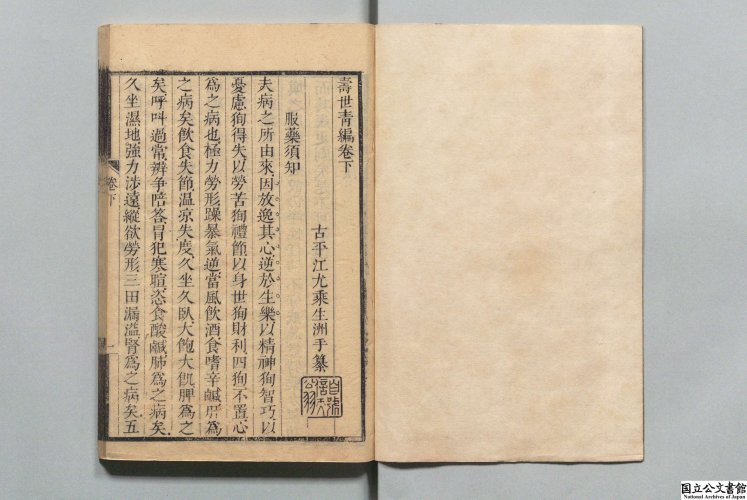 壽世青編卷下
古平江尤乘生洲手纂
服藥須知
夫病之所由來因放逸其心逆於生樂以精神狥智巧以
憂慮狥得失以勞苦狥禮節以身世狥財利四狥不置心
爲之病也極力勞形躁暴氣逆當風飲酒食嗜辛鹹肝爲
之病矣飲食失節溫凉失度久坐久臥大飽大飢脾爲之
病矣呼叫過常辨爭陪答冒犯寒暄恣食酸鹹肺爲之病矣
久坐濕地強力涉遠縱欲勞形三田漏溢腎爲之病矣五
卷下
一
国立公文書館
National Archives of Japan